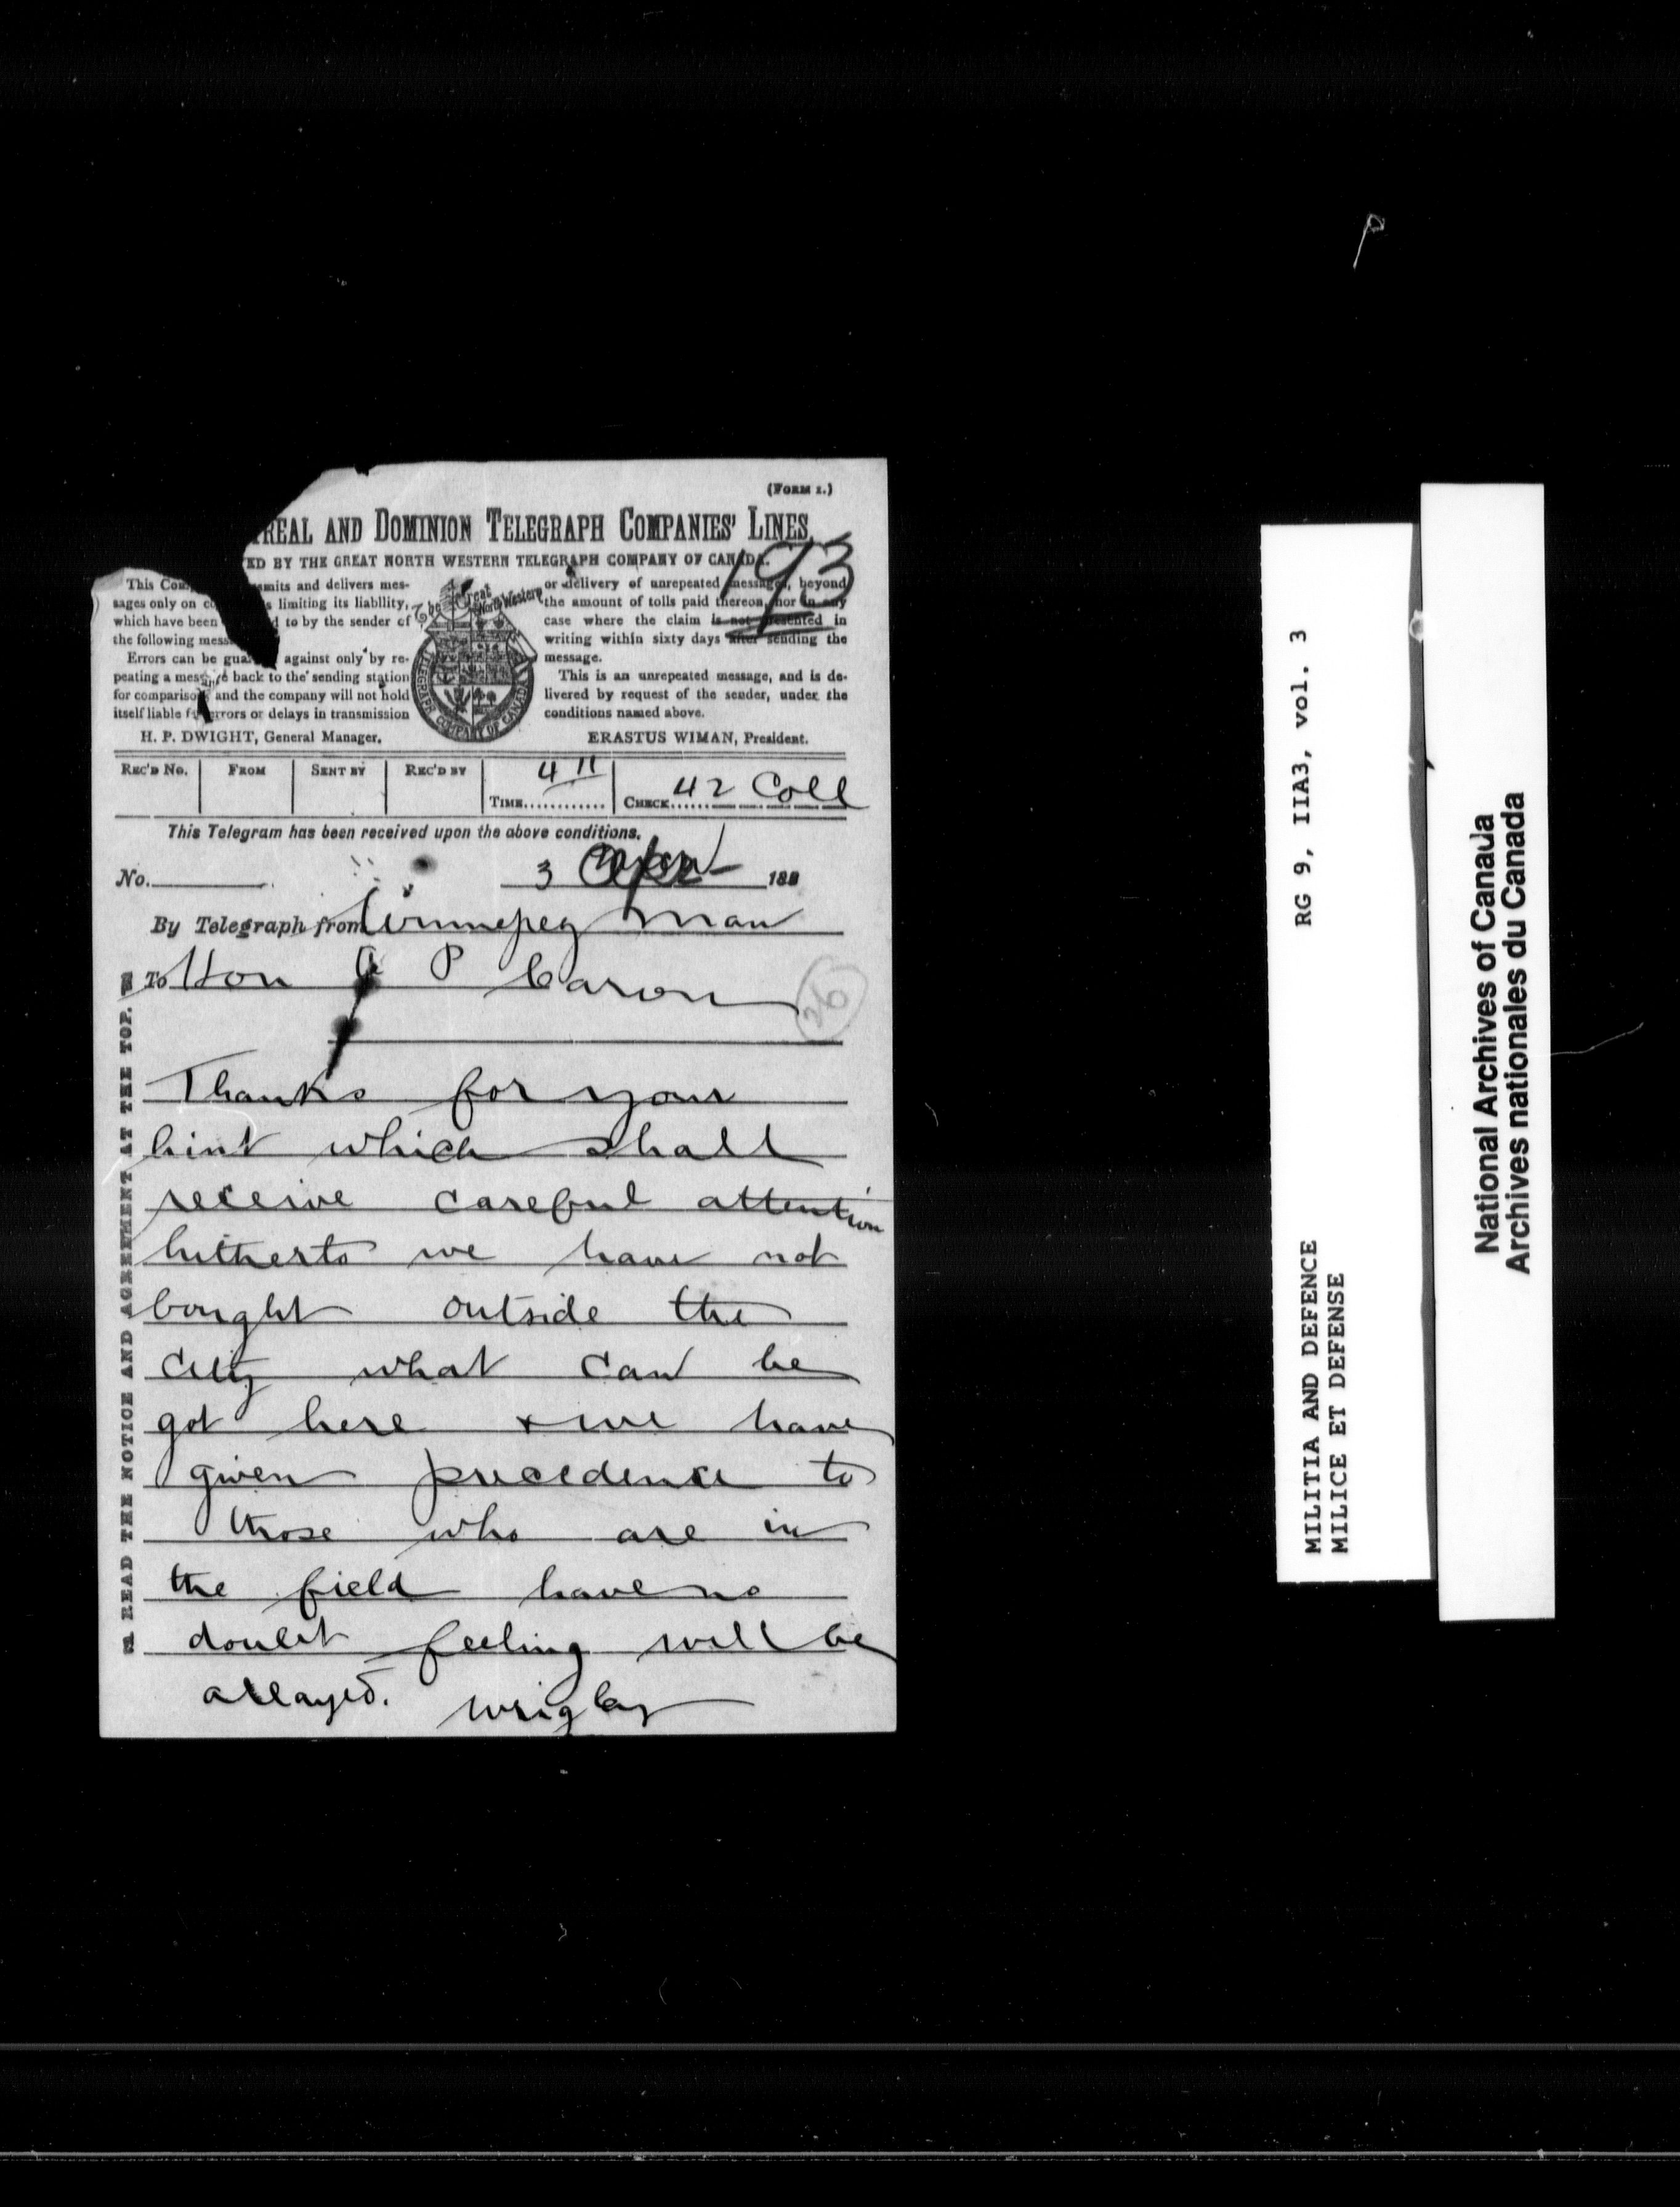 (FORM 1.)
TREAL AND DOMINION TELEGRAPH COMPANIES' LINES.
ED BY THE GREAT NORTH WESTERN TELEGRAPH COMPANY OF CANADA.
193
This Com smits and delivers mes-
sages only on co s limiting its liability,
which have been d to by the sender of
the following mess
Errors can be gua against only by re-
peating a mes back to the sending station
for comparison and the company will not hold
itself liable for errors or delays in transmission
H. P. DWIGHT, General Manager.
The Great North Western
TELEGRAPH COMPANY OF CANADA
or delivery of unrepeated messages, beyond
the amount of tolls paid thereon, nor in any
case where the claim is not presented in
writing within sixty days after sending the
message.
This is an unrepeated message, and is de-
livered by request of the sender, under the
conditions named above.
ERASTUS WIMAN, President.
REC'D NO. FROM SENT BY REC'D BY TIME 4 11 CHECK 42 Coll
This Telegram has been received upon the above conditions.
No. 3 188
By Telegraph from Winnepeg Man
To Hon A P Caron
26
Thanks for your
hint which shall
receive careful attention
hitherto we have not
bought outside the
City what can be
got here + we have
given precedence to
those who are in
the field have no
doubt feeling will be
allayed. Wrigley
READ THE NOTICE AND AGREEMENT AT THE TOP.
MILITIA AND DEFENCE RG 9, IIA3, vol. 3
MILICE ET DEFENSE
National Archives of Canada
Archives nationales du Canada